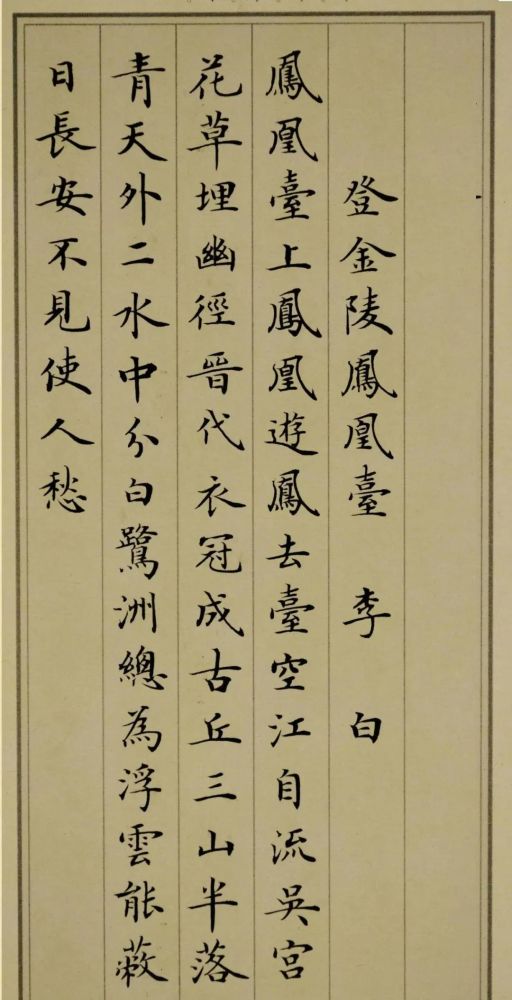 登金陵鳳凰臺 李白
鳳凰臺上鳳凰遊鳳去臺空江自流吳宮
花草埋幽徑晉代衣冠成古丘三山半落
青天外二水中分白鷺洲總為浮雲能蔽
日長安不見使人愁